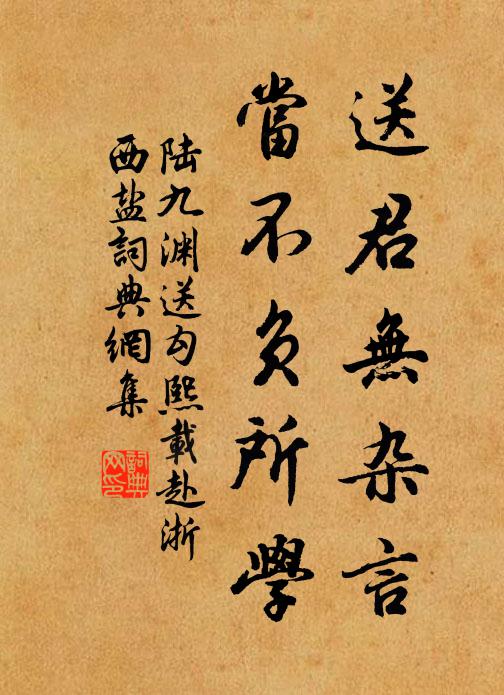 送君無杂言
當不负所學
陆九渊送勾熙載赴浙
西盐詞典網集
詞典网印